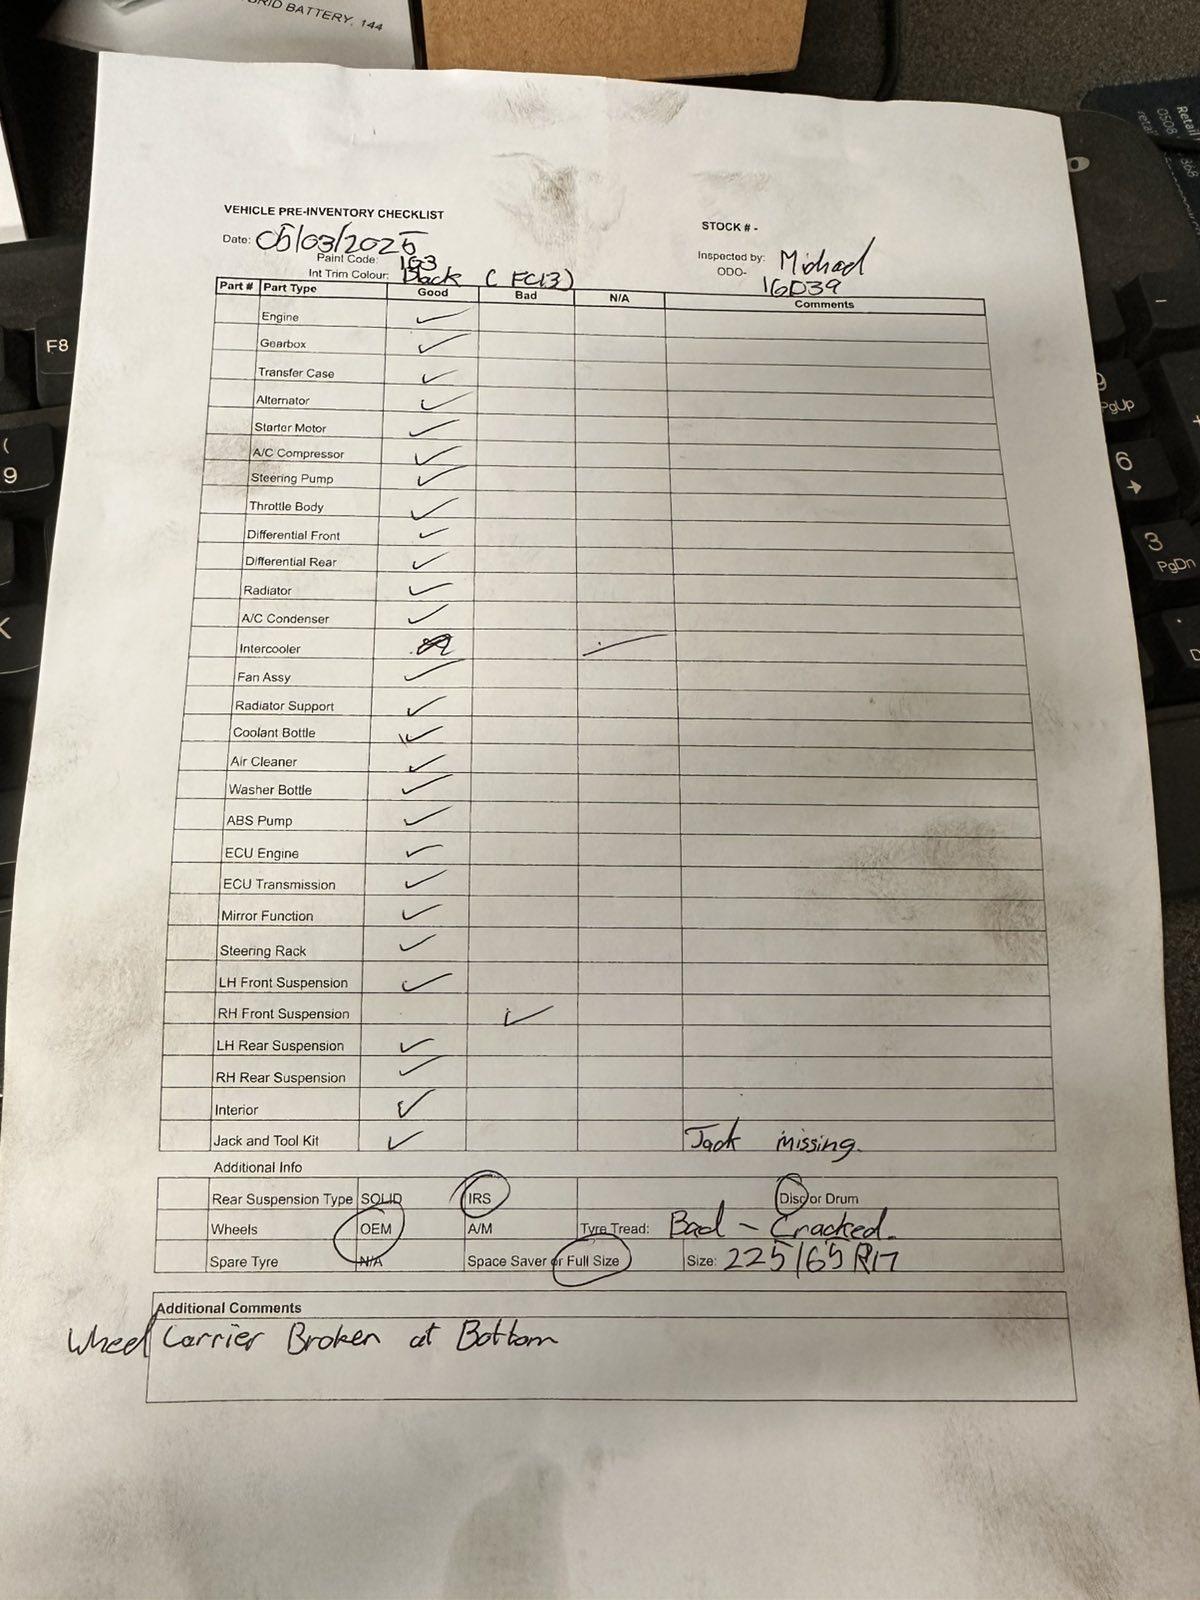 BRID BATTERY, 144
VEHICLE PRE-INVENTORY CHECKLIST
STOCK # -
Date: 05/03/2025
Inspected by: Michael
Paint Code: 1G3
ODO- 16039
Int Trim Colour: Black (FC13)
Part # Part Type Good Bad N/A Comments
Engine ✓
Gearbox ✓
Transfer Case ✓
Alternator ✓
Starter Motor ✓
A/C Compressor ✓
Steering Pump ✓
Throttle Body ✓
Differential Front ✓
Differential Rear ✓
Radiator ✓
A/C Condenser ✓
Intercooler ✓
Fan Assy ✓
Radiator Support ✓
Coolant Bottle ✓
Air Cleaner ✓
Washer Bottle ✓
ABS Pump ✓
ECU Engine ✓
ECU Transmission ✓
Mirror Function ✓
Steering Rack ✓
LH Front Suspension ✓
RH Front Suspension ✓
LH Rear Suspension ✓
RH Rear Suspension ✓
Interior ✓
Jack and Tool Kit ✓ Jack missing.
Additional Info
Rear Suspension Type SOLID IRS Disc or Drum
Wheels OEM A/M Tyre Tread: Bad - Cracked.
Spare Tyre N/A Space Saver or Full Size Size: 225/65 R17
Additional Comments
Wheel Carrier Broken at Bottom
F8
(
9
K
9
PgUp
6
3
PgDn
Retail
0508